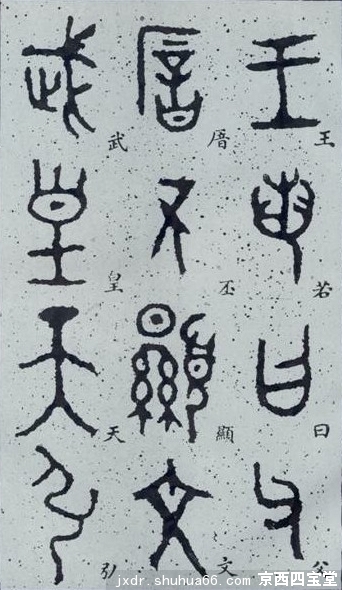 王若曰父
厝丕顯文
武皇天引
京西四宝堂
jxdr.shuhua66.com